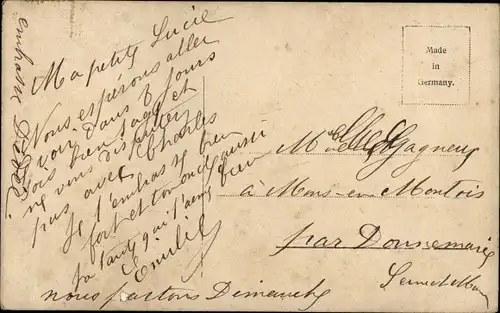 Ma petite Lucie
Nous espérons aller
te voir dans 8 jours
sois bien sage et
ne vous disputez
pas avec Charles
Je t'embrasse bien
fort et ton oncle aussi
ta tante qui t'aime bien
Emilie
nous partons Dimanche
embrasse Dédé
Made
in
Germany.
Gagneux
à Mons-en Montois
par Donnemarie
Seine et Marne